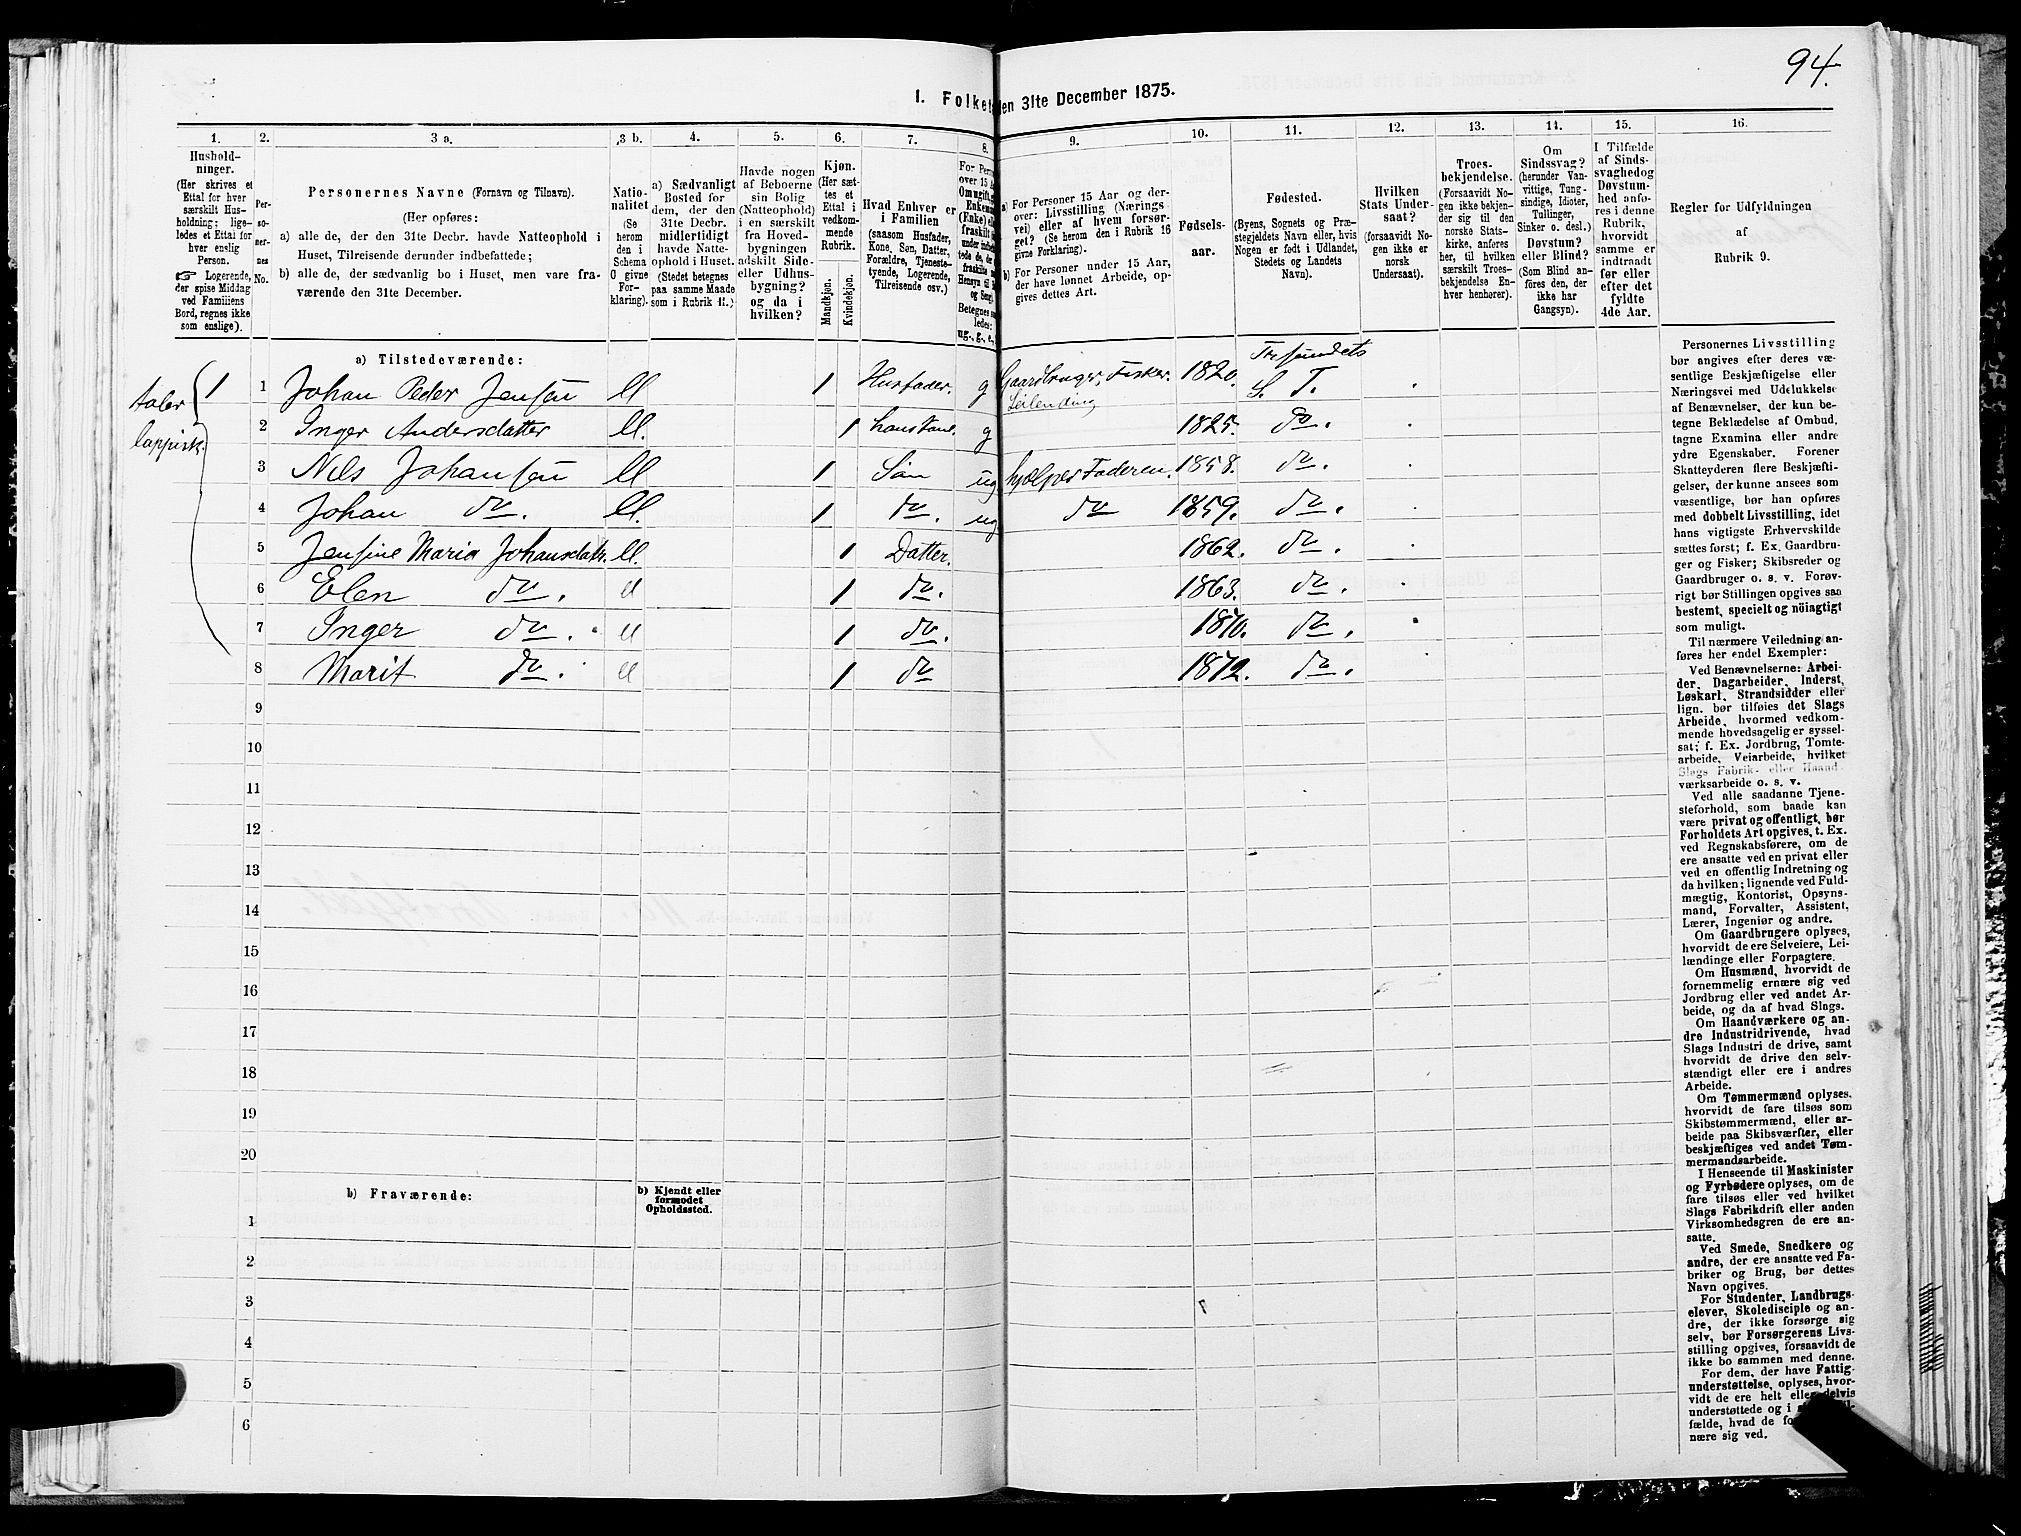 94.
I. Folket
den 31te December 1875.
1.
2.
3 a.
3 b.
4.
5.
6.
7.
8.
9.
10.
11.
12.
13.
14.
15.
16.
Hushold-
ninger.
(Her skrives et
Ettal for hver
særskilt Hus-
holdning; lige-
ledes et Ettal for
hver enslig
Person.
☞ Logerende,
der spise Middag
ved Familiens
Bord, regnes ikke
som enslige).
Per-
so-
ner-
nes
No.
Personernes Navne (Fornavn og Tilnavn).
(Her opføres:
a) alle de, der den 31te Decbr. havde Natteophold i
Huset, Tilreisende derunder indbefattede;
b) alle de, der sædvanlig bo i Huset, men vare fra-
værende den 31te December.
Natio-
nalitet
(Se
herom
den i
Schema
O givne
For-
klaring).
a) Sædvanligt
Bosted for
dem, der den
31te Decbr.
midlertidigt
havde Natte-
ophold i Huset.
(Stedet betegnes
paa samme Maade
som i Rubrik 11.)
Havde nogen
af Beboerne
sin Bolig
(Natteophold)
i en særskilt
fra Hoved-
bygningen
adskilt Side-
eller Udhus-
bygning?
og da i
hvilken?
Kjøn.
(Her sæt-
tes et
Ettal i
vedkom-
mende
Rubrik.
Mandkjøn.
Kvindekjøn.
Hvad Enhver er
i Familien
(saasom Husfader,
Kone, Søn, Datter,
Forældre, Tjeneste-
tyende, Logerende,
Tilreisende osv.)
For Pers
over 15 A
Om ugift, g
Enkem
(Enke) e
fraskilt
under indb
tede de, de
fraskilte
Hensyn til
og Seng)
Betegnes s
ledes:
ug., g., e.,
a) For Personer 15 Aar og der-
over: Livsstilling (Nærings-
vei) eller af hvem forsør-
get? (Se herom den i Rubrik 16
givne Forklaring).
b) For Personer under 15 Aar,
der have lønnet Arbeide, op-
gives dettes Art.
Fødsels-
aar.
Fødested.
(Byens, Sognets og Præ-
stegjeldets Navn eller, hvis
Nogen er født i Udlandet,
Stedets og Landets
Navn).
Hvilken
Stats Under-
saat?
(forsaavidt No-
gen ikke er
norsk
Undersaat).
Troes-
bekjendelse.
(Forsaavidt No-
gen ikke bekjen-
der sig til den
norske Stats-
kirke, anføres
her, til hvilken
særskilt Troes-
bekjendelse En-
hver henhører).
Om
Sindssvag?
(herunder Van-
vittige, Tung-
sindige, Idioter,
Tullinger,
Sinker o. desl.)
Døvstum?
eller Blind?
(Som Blind an-
føres den, der
ikke har
Gangsyn).
I Tilfælde
af Sinds-
svaghed og
Døvstum-
hed anfø-
res i denne
Rubrik,
hvorvidt
samme er
indtraadt
før eller
efter det
fyldte
4de Aar.
Regler for Udfyldningen
af
Rubrik 9.
a) Tilstedeværende:
taler
lappisk.
1 1 Johan Peder Jensen 1 Husfader. g Gaardbruger, Fisker. 1820. Tr sundets
Leilending S. T.
2 Inger Andersdatter 1 hans Kone. g 1825. do.
3 Nils Johansen 1 Søn ug hjælper Faderen. 1858. do.
4 Johan do. 1 do. ug do 1859. do.
5 Jensine Maria Johansdatr. 1 Datter. 1862. do.
6 Elen do. 1 do. 1863. do.
7 Inger do. 1 do. 1870. do.
8 Marit do. 1 do 1872. do.
9
10
11
12
13
14
15
16
17
18
19
20
b) Fraværende:
b) Kjendt eller
formodet
Opholdssted.
1
2
3
4
5
6
Personernes Livsstilling
bør angives efter deres væ-
sentlige Beskjæftigelse eller
Næringsvei med Udelukkelse
af Benævnelser, der kun be-
tegne Beklædelse af Ombud,
tagne Examina eller andre
ydre Egenskaber. Forener
Skatteyderen flere Beskjæfti-
gelser, der kunne ansees som
væsentlige, bør han opføres
med dobbelt Livsstilling, idet
hans vigtigste Erhvervskilde
sættes først; f. Ex. Gaardbru-
ger og Fisker; Skibsreder og
Gaardbruger o. s. v. Forøv-
rigt bør Stillingen opgives saa
bestemt, specielt og nöiagtigt
som muligt.
Til nærmere Veiledning an-
føres her endel Exempler:
Ved Benævnelserne: Arbei-
der, Dagarbeider, Inderst,
Løskarl, Strandsidder eller
lign. bør tilføies det Slags
Arbeide, hvormed vedkom-
mende hovedsagelig er syssel-
sat; f. Ex. Jordbrug, Tomte-
arbeide, Veiarbeide, hvilket
Slags Fabrik- eller Haand-
værksarbeide o. s. v.
Ved alle saadanne Tjene-
steforhold, som baade kan
være privat og offentligt, bør
Forholdets Art opgives, t. Ex.
ved Regnskabsførere, om de
ere ansatte ved en privat eller
ved en offentlig Indretning og
da hvilken; lignende ved Fuld-
mægtig, Kontorist, Opsyns-
mand, Forvalter, Assistent,
Lærer, Ingeniør og andre.
Om Gaardbrugere oplyses,
hvorvidt de ere Selveiere, Lei-
lændinge eller Forpagtere.
Om Husmænd, hvorvidt de
fornemmelig ernære sig ved
Jordbrug eller ved andet Ar-
beide, og da af hvad Slags.
Om Haandværkere og an-
dre Industridrivende, hvad
Slags Industri de drive, samt
hvorvidt de drive den selv-
stændigt eller ere i andres
Arbeide.
Om Tømmermænd oplyses,
hvorvidt de fare tilsøs som
Skibstømmermænd, eller ar-
beide paa Skibsværfter, eller
beskjæftiges ved andet Tøm-
mermandsarbeide.
I Henseende til Maskinister
og Fyrbødere oplyses, om de
fare tilsøs eller ved hvilket
Slags Fabrikdrift eller anden
Virksomhedsgren de ere an-
satte.
Ved Smede, Snedkere og
andre, der ere ansatte ved Fa-
briker og Brug, bør dettes
Navn opgives.
For Studenter, Landbrugs-
elever, Skoledisciple og an-
dre, der ikke forsørge sig
selv, bør Forsørgerens Livs-
stilling opgives, forsaavidt de
ikke bo sammen med denne.
For dem, der have Fattig-
understøttelse, oplyses, hvor-
vidt de ere helt eller delvis
understøttede og i
fælde, hvad de
nære sig ved.